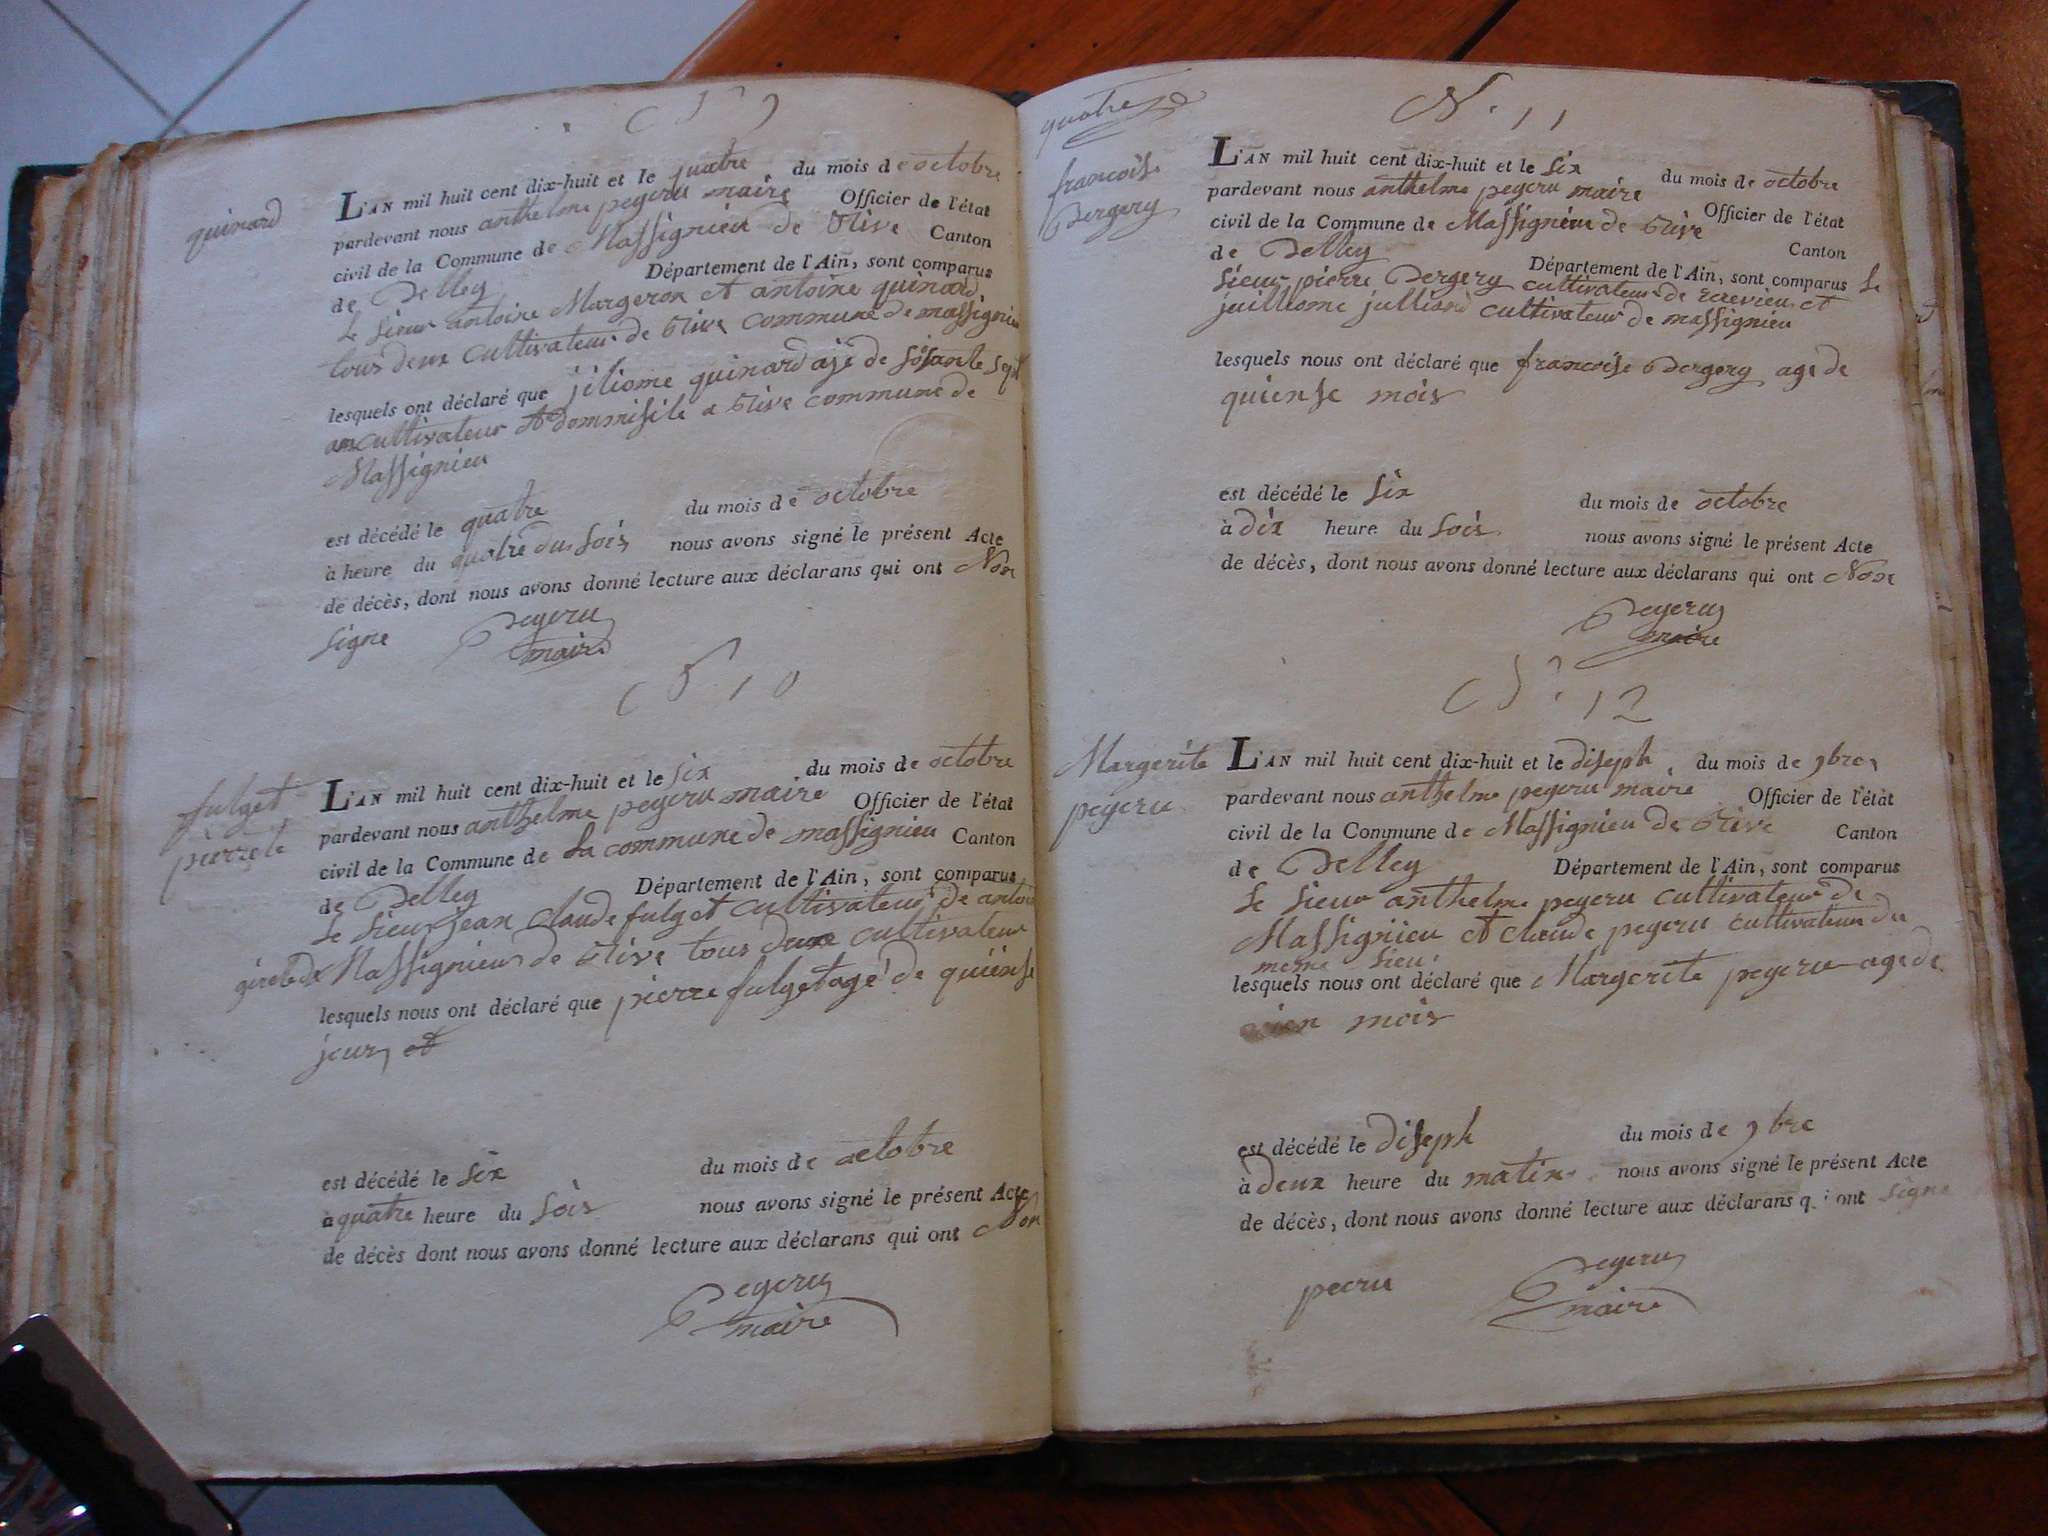 N° 9
quinard
L'AN mil huit cent dix-huit et le quatre du mois de octobre
pardevant nous anthelme peyeru maire Officier de l'état
civil de la Commune de Massignieu de Rive Canton
de Belley Département de l'Ain, sont comparus
le sieur antoine Margeron et antoine quinard
tous deux cultivateur de Rive commune de massignieu
lesquels ont déclaré que jiliome quinard agé de soisante sept
an cultivateur et dommisile a Rive commune de
Massignieu
est décédé le quatre du mois de octobre
à heure du quatre du soir nous avons signé le présent Acte
de décès, dont nous avons donné lecture aux déclarans qui ont Non
signe Peyeru
maire
N° 10
fulget
pierre
L'AN mil huit cent dix-huit et le six du mois de octobre
pardevant nous anthelme peyeru maire Officier de l'état
civil de la Commune de La commune de massignieu Canton
de Belley Département de l'Ain, sont comparus
le sieur jean claude fulget cultivateur de
Massignieu de Rive tous deux cultivateur
lesquels nous ont déclaré que pierre fulget agé de quiense
jour et
est décédé le six du mois de octobre
à quatre heure du soir nous avons signé le présent Acte
de décès dont nous avons donné lecture aux déclarans qui ont Non
Peyeru
maire
quatre
N° 11
francoise
Bergery
L'AN mil huit cent dix-huit et le six du mois de octobre
pardevant nous anthelme peyeru maire Officier de l'état
civil de la Commune de Massignieu de Rive Canton
de Belley Département de l'Ain, sont comparus le
sieur pierre Bergery cultivateur de et
juilliome julliond cultivateur de massignieu
lesquels nous ont déclaré que francoise Bergery age de
quiense mois
est décédé le six du mois de octobre
à dix heure du soir nous avons signé le présent Acte
de décès, dont nous avons donné lecture aux déclarans qui ont Non
Peyeru
maire
N° 12
Margerite
peyeru
L'AN mil huit cent dix-huit et le diseph du mois de 9bre
pardevant nous anthelme peyeru maire Officier de l'état
civil de la Commune de Massignieu de Rive Canton
de Belley Département de l'Ain, sont comparus
le sieur anthelme peyeru cultivateur de
Massignieu et claude peyeru cultivateur du
meme lieu
lesquels nous ont déclaré que Margerite peyeru age de
mois
est décédé le diseph du mois de 9bre
à deux heure du matin nous avons signé le présent Acte
de décès, dont nous avons donné lecture aux déclarans qui ont signe
pecru Peyeru
maire